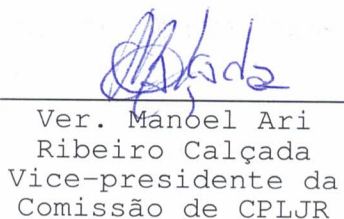 Ver. Manoel Ari
Ribeiro Calçada
Vice-presidente da
Comissão de CPLJR